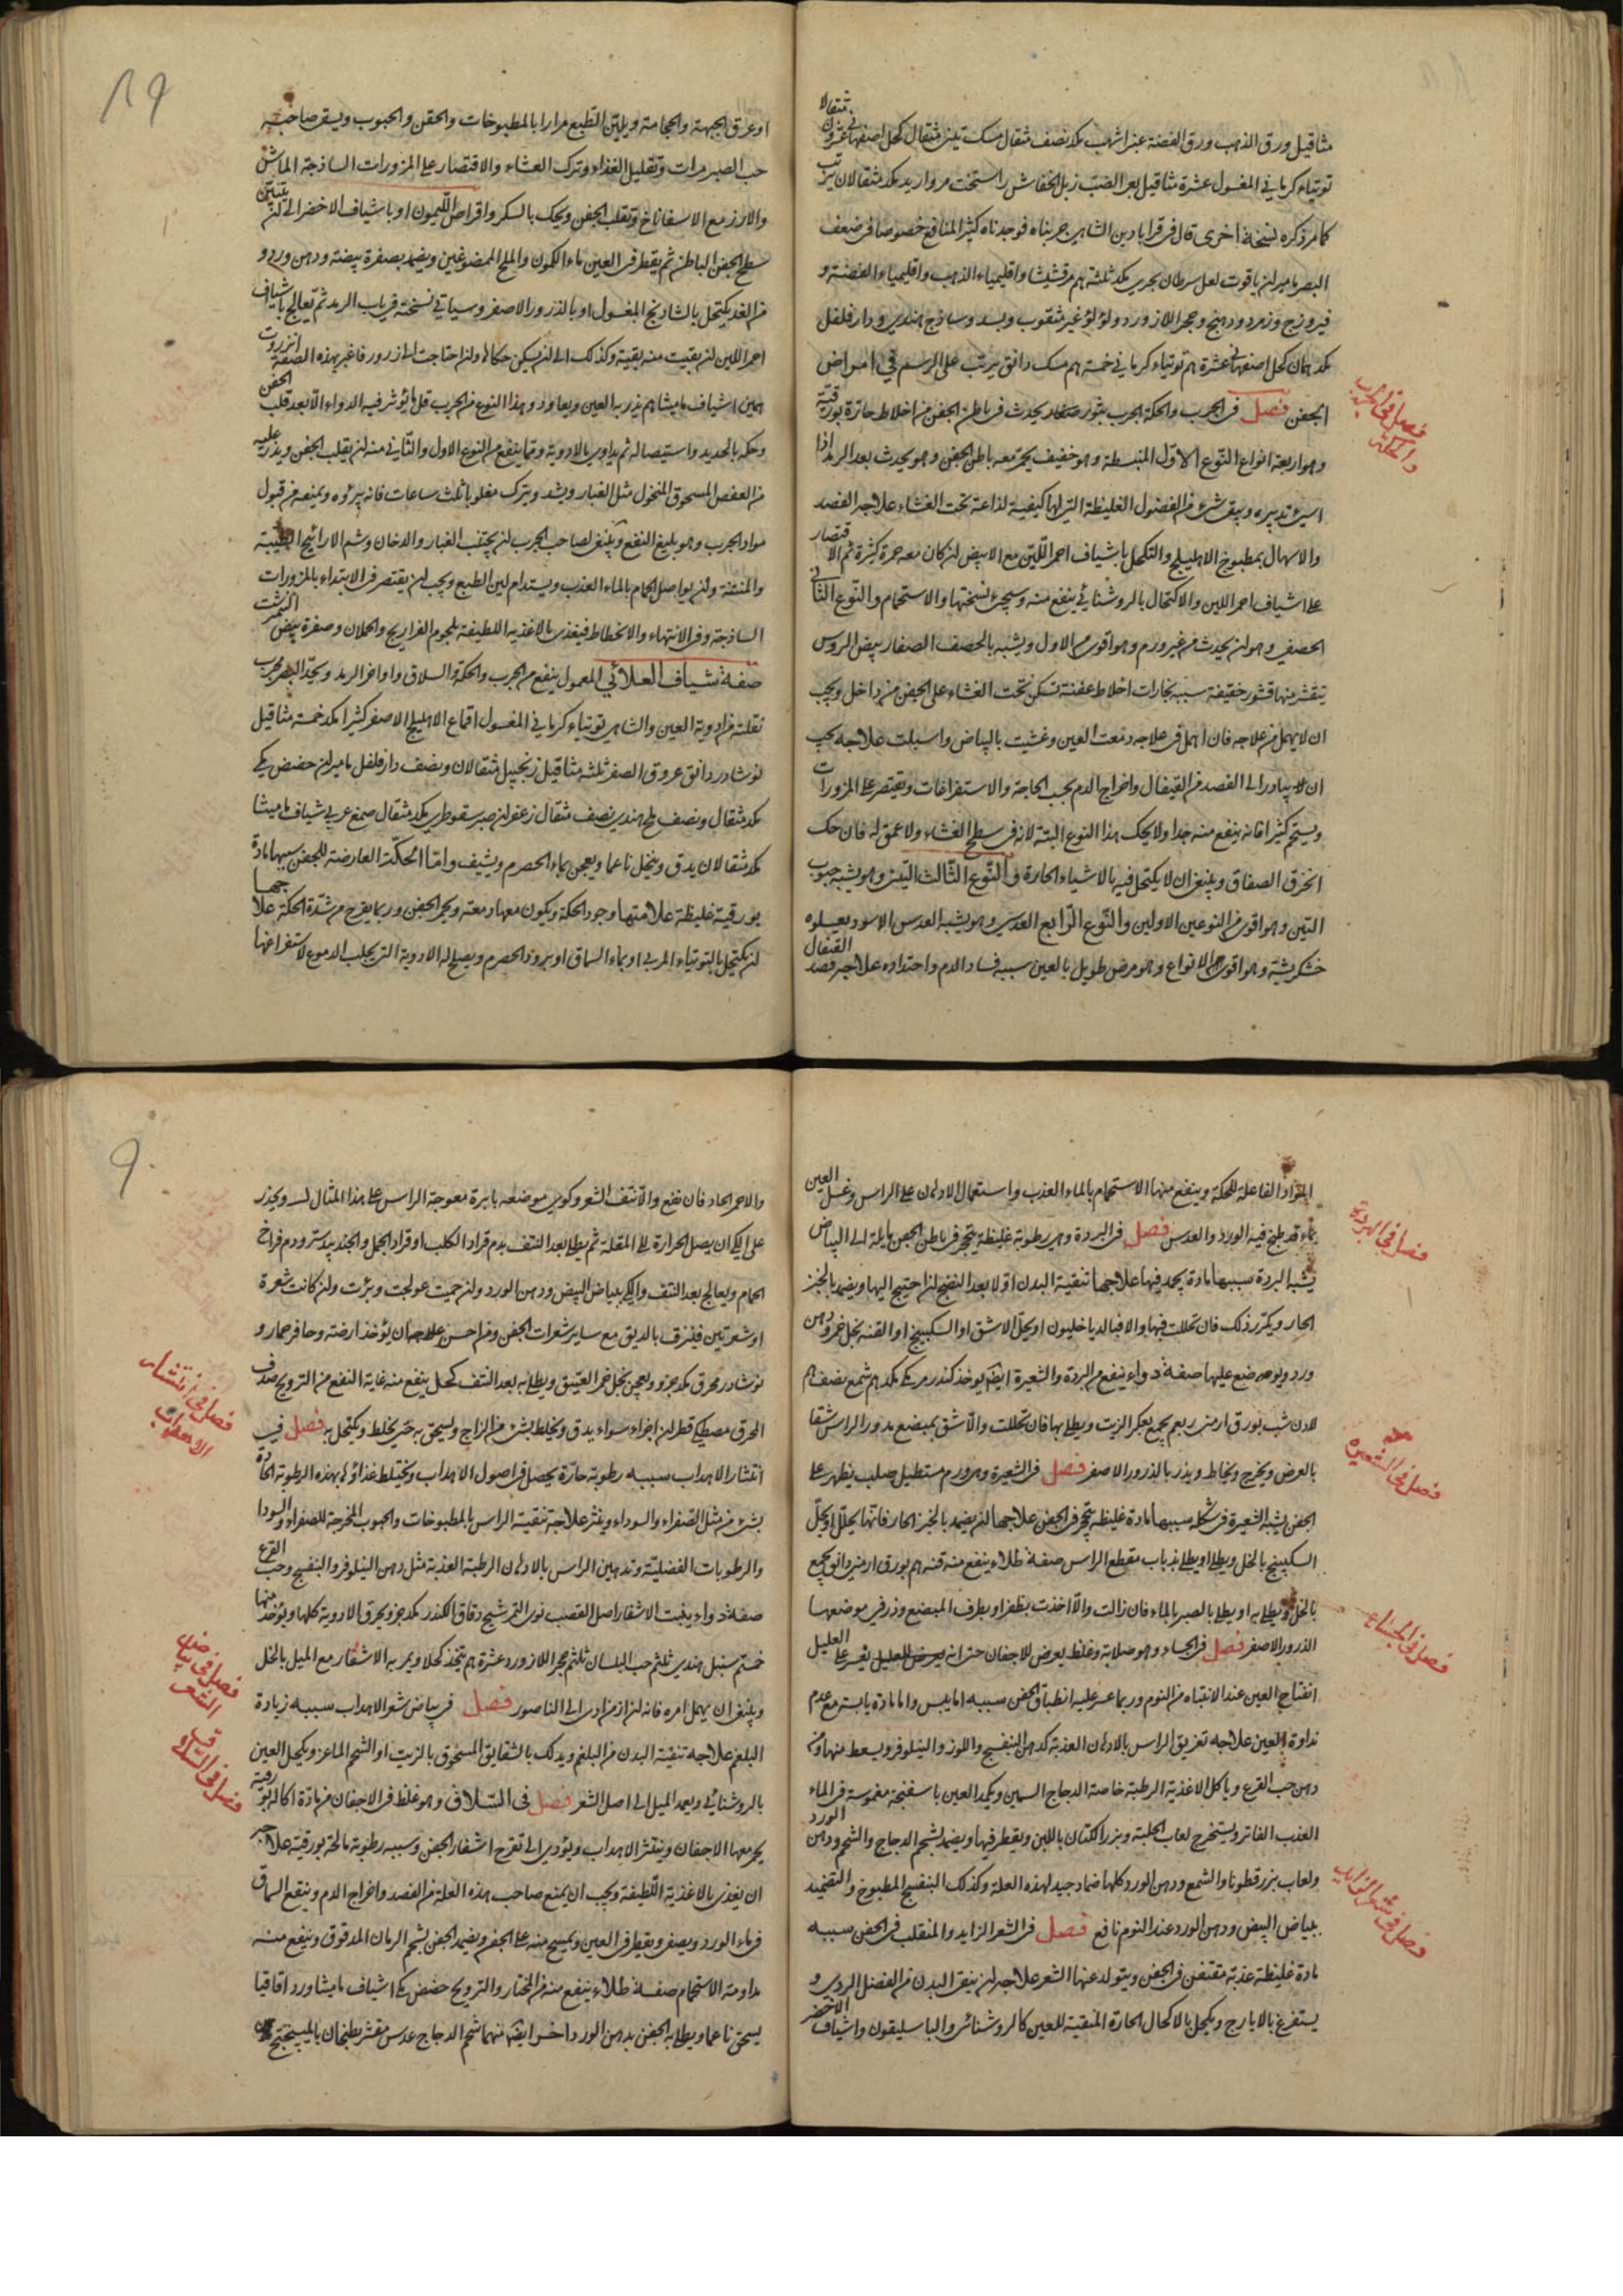 مثاقيل ورق الذهب ورق الفضة عنبر اشهب مكد نصف مثقال مسك تبتى مثقال كحل اصفهانى عشرون مثقالا
توتياء كرمانى المغسول عشرة مثاقيل بعر الضبّ زبل الخفاش راسخت مرواريد مكد مثقالان يرتب
كما مر ذكره نسخة اخرى قال فى قرابادين الشاهى جربناه فوجدناه كثير المنافع خصوصا فى ضعف
البصر ماميران ياقوت لعل سرطان بحرى مكد ثلثة هم مرقشيشا واقليمياء الذهب واقليمياء الفضة و
فيروزج وزمرد ودهنج وحجر اللازورد ولؤلؤ غير مثقوب وبسد وساذج هندى ودار فلفل
مكد همان كحل اصفهانى عشرة هم توتياء كرمانى خمسة هم مسك دانق يرتب على الرسم فى امراض
الجفن فصل فى الجرب والحكة الجرب بثور صغار يحدث فى باطن الجفن من اخلاط حارة بورقية
وهو اربعة انواع النّوع الاوّل المنبسطة وهو خفيف يحمّر معه باطن الجفن وهو يحدث بعد الرمد اذا
اسئ تدبيره وبقى شئ من الفضول الغليظة التى لها كيفية لذاعة تحت الغشاء علاجه الفصد
والاسهال بمطبوخ الاهليلج والتكحل باشياف احمر اللّين مع الابيض ان كان معه حمرة كثيرة ثم الاقتصار
على اشياف احمر اللين والاكتحال بالروشنائى ينفع منه وسيجئ نسختها والاستحمام والنّوع الثانى
الحصفى وهو ان يحدث من غير ورم وهو اقوى من الاول ويشبه بالحصف الصغار بيض الروس
يتقشر منها قشور خفيفة سببه بخارات اخلاط عفنة تسكن تحت الغشاء على الجفن من داخل ويجب
ان لا يهمل من علاجه فان اهمل فى علاجه دمعت العين وغشيت بالبياض واسبلت علاجه يجب
ان يبادر الى الفصد من القيفال واخراج الدم بحسب الحاجة والاستفراغات ويقتصر على المزورات
ويستحم كثيرا فانه ينفع منه جدا ولا يحك هذا النوع البتة لانه فى سطح الغشاء ولا عمق له فان حك
انخرق الصفاق وينبغى ان لا يكتحل فيه بالاشياء الحارة والنّوع الثّالث التينى وهو يشبه حبوب
التين وهو اقوى من النوعين الاولين والنّوع الرّابع العدسى وهو يشبه العدس الاسود يعلوه
خشكريشة وهو اقوى الانواع وهو مرض طويل بالعين سببه فساد الدم واحتداده علاجه فصد القيفال
فصل فى الجرب
والحكة
٨٩
او عرق الجبهة والحجامة ويليّن الطّبع مرارا بالمطبوخات والحقن والحبوب ويسقى صاحبه
حب الصبر مرات وتقليل الغذاء وترك العشاء والاقتصار على المزورات الساذجة الماش
والارز مع الاسفاناخ وتقلب الجفن ويحك بالسكر واقراص اللّيمون او باشياف الاخضر الى ان يتبيّن
سطح الجفن الباطن ثم يقطر فى العين ماء الكمون والملح الممضوغين ويضمد بصفرة بيضة ودهن ورد و
من الغد يكتحل بالشادنج المغسول او بالذرور الاصفر وسياتى نسخته فى باب الرمد ثم تعالج باشياف
احمر اللين ان بقيت منه بقية وكذلك الى ان يسكن حكاكها وان احتاجت الى زرور فاغبر بهذه الصفة انزروت
همان اشياف ماميثا هم يذر به العين ويعاود وهذا النوع من الجرب قل ما يؤثر فيه الدواء الا بعد قلب الجفن
وحكه بالحديد واستيصاله ثم يداوى بالادوية ومما ينفع من النوع الاول والثّانى منه ان يقلب الجفن ويذر عليه
من العفص المسحوق المنخول مثل الغبار ويشد ويترك مقلوبا ثلث ساعات فانه يبرؤه ويمنعه من قبول
مواد الجرب وهو بليغ النفع وينبغى لصاحب الجرب ان يجتنب الغبار والدخان وشم الاراييح الطيبة
والمنتنة وان يواصل الحمام بالماء العذب ويستدام لين الطبع ويجب ان يقتصر فى الابتداء بالمزورات
الساذجة وفى الانتهاء والانحطاط فيغذى بالاغذية اللطيفة بلحوم الفراريج والحملان وصفرة بيض النيمرشت
صفة شياف العلائى المعمول ينفع من الجرب والحكة والسلاق واواخر الرمد ويحدّ البصر مجرب
نقلته من ادوية العين والشاهى توتياء كرمانى المغسول اقماع الاهليلج الاصفر كثيرا مكد خمسة مثاقيل
نوشادر دانق عروق الصفر ثلثه مثاقيل زنجبيل مثقالان ونصف دار فلفل ماميران حضض مكى
مكد مثقال ونصف ملح هندى نصف مثقال زعفران صبر سقوطرى مكد مثقال صمغ عربى شياف ماميثا
مكد مثقالان يدق وينخل ناعما ويعجن بماء الحصرم ويشيف وامّا الحكّت العارضة للجفن سببها مادة
بورقية غليظة علامتها وجود الحكة ويكون معها دمعة ويحمر الجفن وربما يقرح من شدّة الحكة علاجها
ان يكتحل بالتوتياء المربى او بماء السماق او ببرود الحصرم ويصلح له الادوية التى يجلب الدموع لاستفراغها
المواد الفاعلة للحكة وينفع منها الاستحمام بالماء العذب واستعمال الادهان على الراس وغسل العين
بماء قد طبخ فيه الورد والعدس فصل فى البردة وهى رطوبة غليظة يتحجر فى باطن الجفن مايلة الى البياض
يشبه البردة سببها مادة يجمد فيها علاجها تنقية البدن اوّلا بعد النضج ان احتيج اليها ويضمد بالخبز
الحار ويكرّر ذلك فان تحللت فيها والا فبالدياخليون او يحل الاشق او السكبينج او القنه بخل خمر ودهن
ورد ويوضع عليها صفة دواء ينفع من البردة والشعيرة ايضا يوخذ كندر مر مكى مكد هم شمع نصف هم
لادن شب بورق ارمنى ربعم يجمع بعكر الزيت ويطلى بها فان تحللت والّا شق بمبضع مدور الراس شقا
بالعرض ويخرج ويخاط ويذر بالذرور الاصفر فصل فى الشعيرة وهى ورم مستطيل صلب يظهر على
الجفن يشبه الشعيرة فى شكله سببها مادة غليظة يتحجر فى الجفن علاجها ان يضمد بالخبز الحار فانها يحلل او يحلّ
السكبينج بالخل ويطلى او يطلى بذباب مقطع الراس صفة طلاء ينفع منه قنه هم بورق ارمنى دانق يجمع
بالخل ويطلى به او يطلى بالصبر بالماء فان زالت والّا اخذت بظفر او بطرف المبضع وذر فى موضعها
الذرور الاصفر فصل فى الجساء وهو صلابة وغلظ يعرض للاجفان حتى انه يعسر على العليل
انفتاح العين عند الانتباه من النوم وربما عسر عليه انطباق الجفن سببه اما يبس واما مادة يابسة مع عدم
نداوة العين علاجه تغريق الراس بالادهان العذبة كدهن البنفسج واللوز والنيلوفر ويسعط منها ومن
دهن حب القرع وياكل الاغذية الرطبة خاصة الدجاج السمين ويكمد العين باسفنجة مغموسة فى الماء
العذب الفاتر ويستخرج لعاب الحلبة وبزر الكتان باللبن ويقطر فيها ويضمد بشحم الدجاج والشمع ودهن الورد
ولعاب بزر قطونا والشمع ودهن الورد كلها ضماد جيد لهذه العلة وكذلك البنفسج المطبوخ والتضميد
ببياض البيض ودهن الورد عند النوم نافع فصل فى الشعر الزايد والمنقلب فى الجفن سببه
مادة غليظة عذبة متعفن فى الجفن ويتولد عنها الشعر علاجه ان ينقى البدن من الفضل الردى و
يستفرغ بالايارج ويكحل بالاكحال الحارة المنقية للعين كالروشنائى والباسليقون واشياف الاخضر
فصل فى البردة
فصل فى الشعيرة
فصل فى الجساء
فصل فى شعر الزايد
٩٠
والاحمر الحاد فان نفع والّا نتف الشعر وكوى موضعه بابرة معوجة الراس على هذا المثال ويحذر
على الكى ان يصل الحرارة الى المقلة ثم يطلى بعد النتف بدم قراد الكلب او قراد الجمل والجندبيدستر ودم فراخ
الحمام ويعالج بعد النتف والكى ببياض البيض ودهن الورد وان حميت عولجت وبرئت وان كانت شعرة
او شعرتين فيلزق بالدبق مع ساير شعرات الجفن ومن احسن علاجه ان يؤخذ ارضة وحافر حمار و
نوشادر محرق مكد جزو ويعجن بخل خمر العتيق ويطلى به بعد النتف كحل ينفع منه غاية النفع من الترويح صدف
المحرق مصطكى قطران اجزاء سواء يدق ويخلط بشئ من الزاج ويسحق به حتى يخلط ويكتحل به فصل فى
انتشار الاهداب سببه رطوبة حارة يحصل فى اصول الاهداب ويختلط غذاؤها بهذه الرطوبة الحادة
بشئ من مثل الصّفراء والسوداء وينثر علاجه تنقية الراس بالمطبوخات والحبوب المخرجة للصفراء والسودا
والرطوبات الفضليّة وتدهين الراس بالادهان الرطبة العذبة مثل دهن النيلوفر والبنفسج وحب القرع
صفة دواء ينبت الاشفار اصل القصب نوى التمر شيح دقاق الكندر مكد جزو يحرق الادوية كلها ويؤخذ منها
خمستم سنبل هندى ثلثم حب البلسان ثلثم حجر اللازورد عشرة هم يتخذ كحلا ويمر به الاشفار مع الميل بالخل
وينبغى ان يهمل امره فانه ان ازمن ادى الى الناصور فصل فى بياض شعر الاهداب سببه زيادة
البلغم علاجه تنقية البدن من البلغم ويدلك بالشقايق المسحوق بالزيت او الشحم الماعز ويكحل العين
بالروشنائى ويعمد الميل الى اصل الشعر فصل فى السّلاق وهو غلظ فى الاجفان من مادّة اكالة بورقية
يحمر معها الاجفان وينتثر الاهداب ويؤدى الى تقرح اشفار الجفن وسببه رطوبة مالحة بورقية علاجه
ان يغذى بالاغذية اللّطيفة ويجب ان يمنع صاحب هذه العلة من الفصد واخراج الدم وينقع السماق
فى ماء الورد ويصفى ويقطر فى العين ويمسح منه على الجفن ويضمد الجفن بشحم الرمان المدقوق وينفع منه
مداومة الاستحمام صفة طلاء ينفع منه من المختار والترويح حضض مكى اشياف ماميثا ورد اقاقيا
يسحق ناعما ويطلى به الجفن بدهن الورد اخرى ايضا منهما شحم الدجاج عدس مقشر يطبخان بالميبختج
فصل فى انتشار
الاهداب
فصل فى بياض
الشعر
فصل فى السلاق